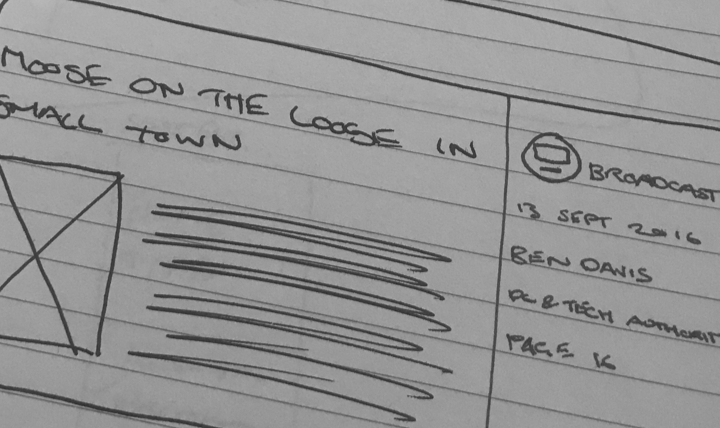 MOOSE ON THE LOOSE IN
SMALL TOWN
BROADCAST
13 SEPT 2016
BEN DAVIS
PC & TECH AUTHORIT
PAGE 16